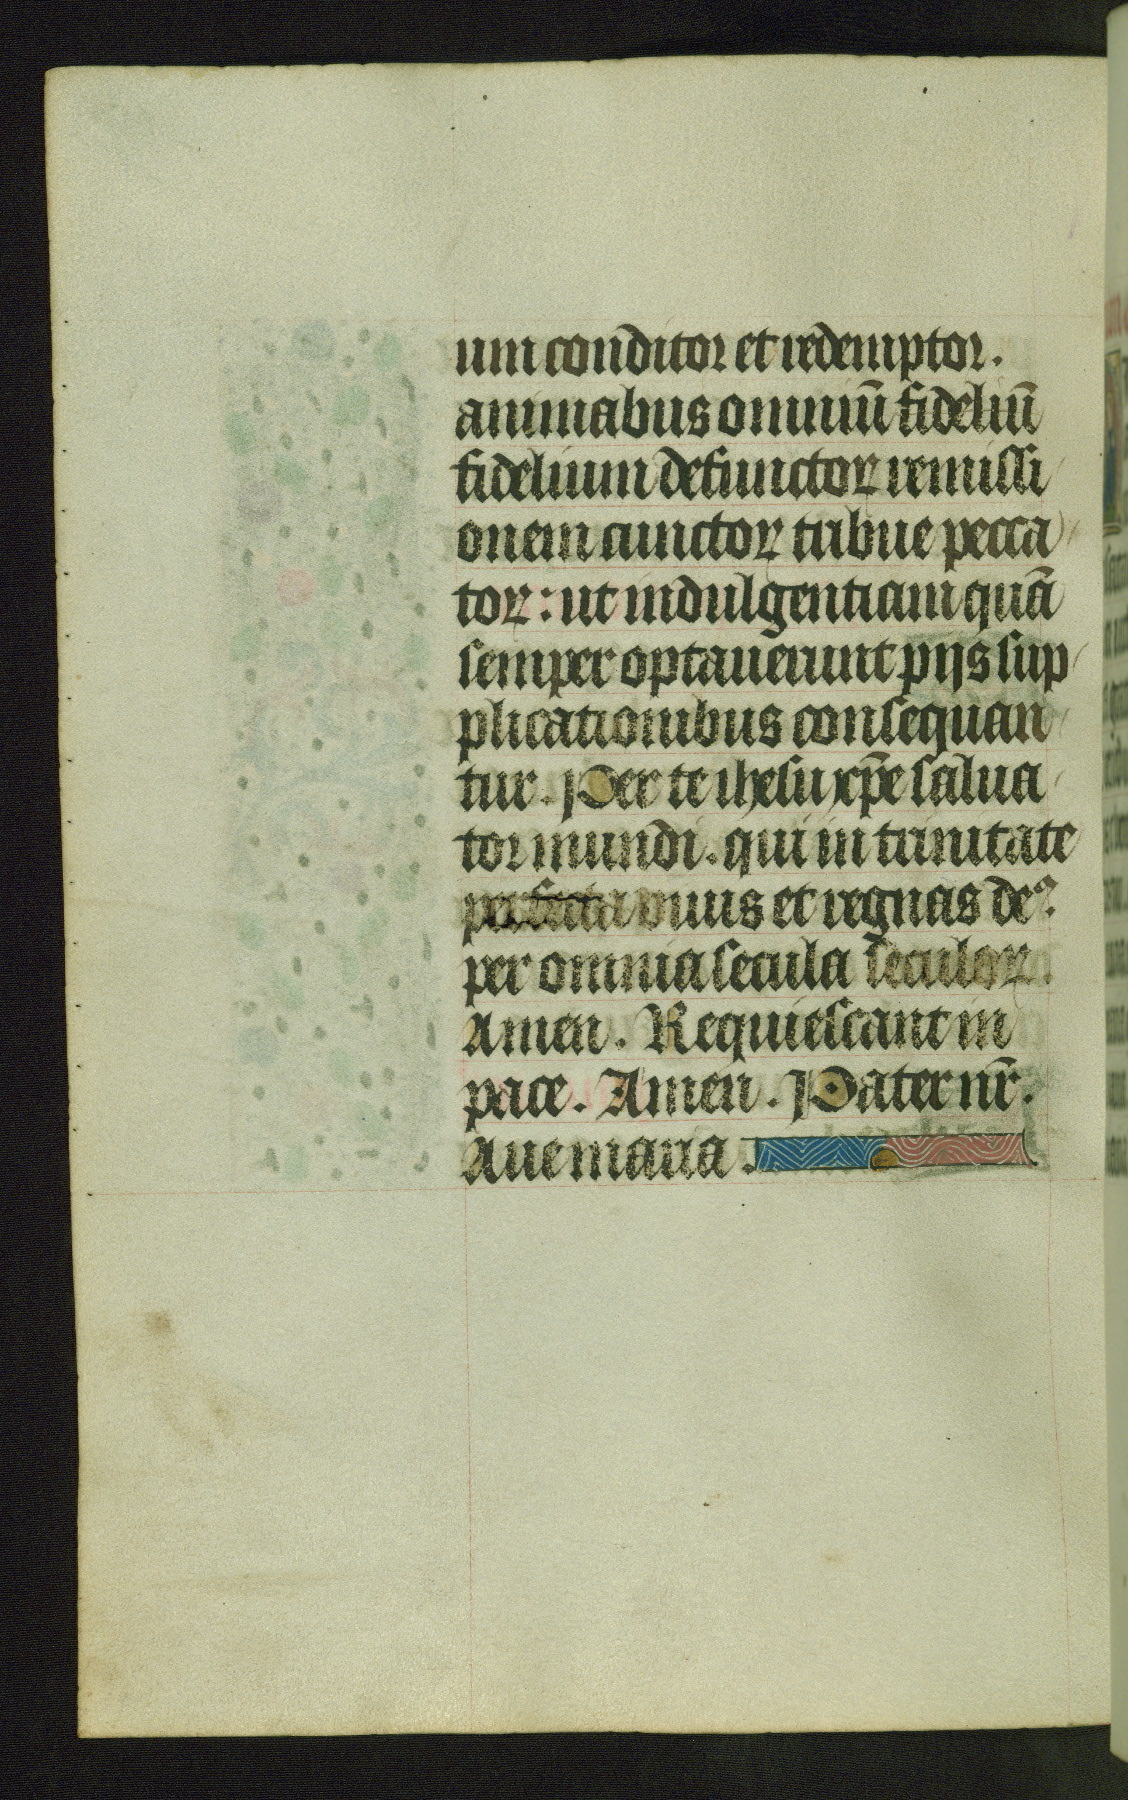 um conditor et redemptor.
animabus omniū fideliū
fidelium defunctoꝝ remissi
onem cunctoꝝ tribue pecca
toꝝ: ut indulgentiam quā
semper optauerunt pijs sup
plicationibus consequan
tur. Per te ihesu xp̄e salua
tor mundi. qui in trinitate
perfecta viuis et regnas deꝰ.
per omnia secula seculoꝝ.
Amen. Requiescant in
pace. Amen. Pater nr̄.
Aue maria.